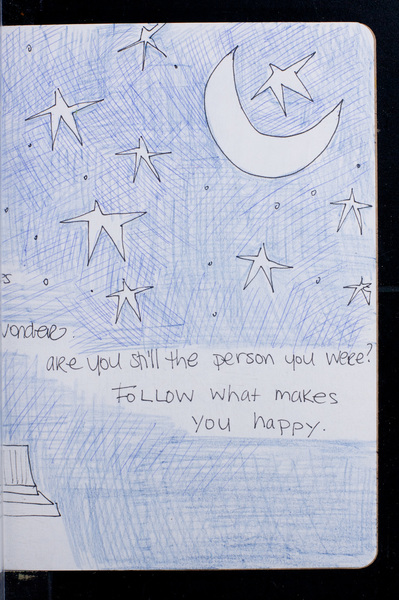 wonder.
are you still the person you were?
FOLLOW what makes
you happy.